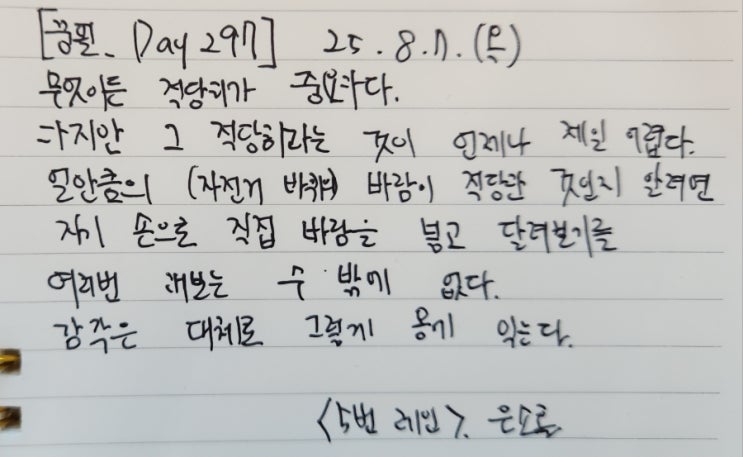 [꿈필_ Day 297] 25. 8. 7. (목)
무엇이든 적당히가 중요하다.
하지만 그 적당히라는 것이 언제나 제일 어렵다.
얼만큼의 (자전거 바퀴) 바람이 적당한 것인지 알려면
자기 손으로 직접 바람을 넣고 달려보기를
여러번 해보는 수 밖에 없다.
감각은 대체로 그렇게 몸이 익는다.
<5번 레인>. 은소홀